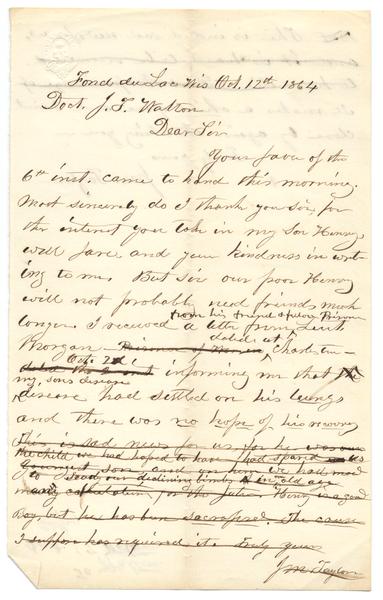 Fond du Lac Wis Oct. 12th 1864
Doct. J. T. Walton
Dear Sir
Your favor of the
6th inst. came to hand this morning.
Most sincerely do I thank you Sir, for
the interest you take in my Son Henrys
well fare and your kindness in writ
ing to me. But Sir our poor Henry
will not probably need friends much
from his friend & fellow Prisoner
longer. I received a letter from Lieut
dated at
Morgan Prisoner of War Charleston
Oct. 2d
informing me that
my sons disease
disease had settled on his lungs
and there was no hope of his recovery
This is sad news for us, for he was our
the child we had hoped to have had spend
youngest son, and on him we had
to our declining in old age
made calculation for the future. Henry is a good
Boy, but he has been sacrificed. The cause
I suppose has required it. Truly yours
J M Taylor